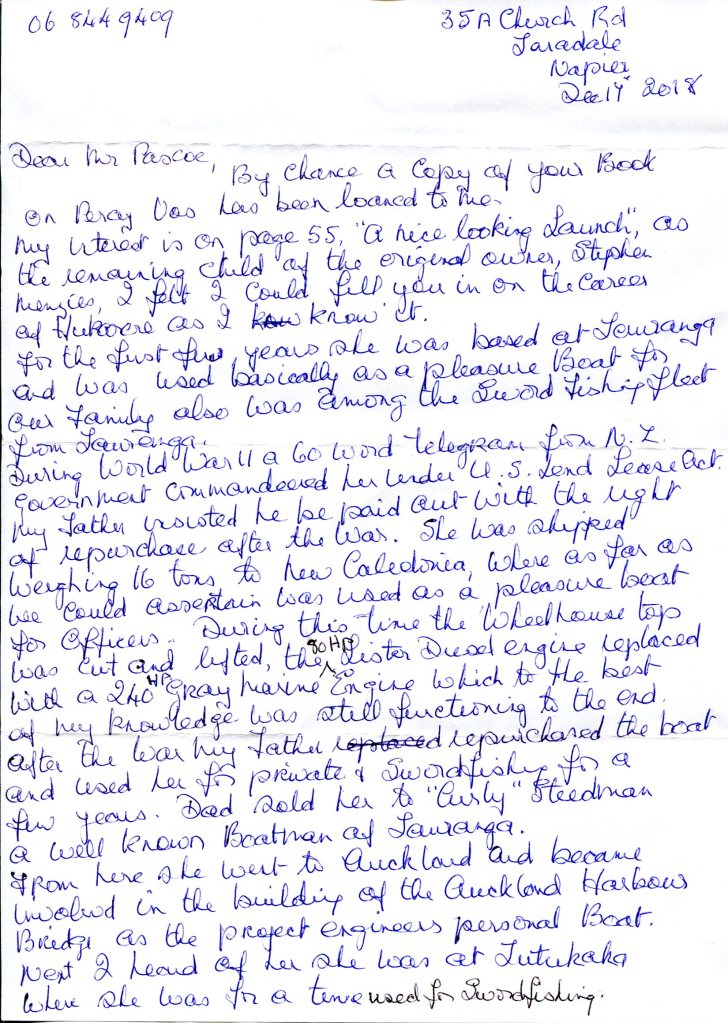 06 8449409
35A Church Rd
Taradale
Napier
Dec 17" 2018
Dear Mr Pascoe,
By Chance a Copy of your Book
on Percy Vos has been loaned to me.
My interest is on page 55, "A nice looking Launch", as
the remaining child of the original owner, Stephen
Menzies, I felt I could fill you in on the career
of Hukarere as I know it.
For the first few years she was based at Tauranga
and was used basically as a pleasure Boat for
our Family also was among the Sword Fishing Fleet
from Tauranga.
During World War 11 a 60 word telegram from N.Z.
Government Commandeered her under U.S. Lend Lease Act.
My Father insisted he be paid out with the right
of repurchase after the War. She was shipped
weighing 16 tons, to New Caledonia, where as far as
we could assertain was used as a pleasure boat
for Officers. During this time the wheelhouse top
was cut and lifted, the 80 HP Lister Diesel engine replaced
with a 240 HP Gray Marine Engine which to the best
of my knowledge was still functioning to the end.
After the War my Father replaced repurchased the boat
and used her for private & Swordfishing for a
few years. Dad sold her to "Curly" Steedman
a well known Boatman of Tauranga.
From here she went to Auckland and became
involved in the building of the Auckland Harbour
Bridge as the project engineers personal Boat.
Next I heard of her she was at Tutukaka
where she was for a time used for Swordfishing.